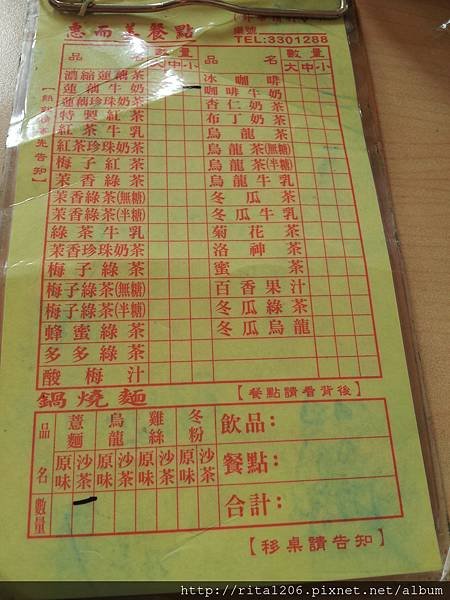 惠而美餐點
桌號
TEL:3301288
品名 數量 大中小
品名 數量 大中小
濃縮蓮藕茶
蓮藕牛奶
蓮藕珍珠奶茶
特製紅茶
紅茶牛乳
紅茶珍珠奶茶
梅子紅茶
茉香綠茶
茉香綠茶(無糖)
茉香綠茶(半糖)
綠茶牛乳
茉香珍珠奶茶
梅子綠茶
梅子綠茶(無糖)
梅子綠茶(半糖)
蜂蜜綠茶
多多綠茶
酸梅汁
冰咖啡
咖啡牛奶
杏仁奶茶
布丁奶茶
烏龍茶
烏龍茶(無糖)
烏龍茶(半糖)
烏龍牛乳
冬瓜茶
冬瓜牛乳
菊花茶
洛神茶
蜜茶
百香果汁
冬瓜綠茶
冬瓜烏龍
鍋燒麵
【餐點請看背後】
品名 薏麵 烏龍 雞絲 冬粉
原味 沙茶 原味 沙茶 原味 沙茶 原味 沙茶
數量
飲品:
餐點:
合計:
【移桌請告知】
http://rita1206.pixnet.net/album